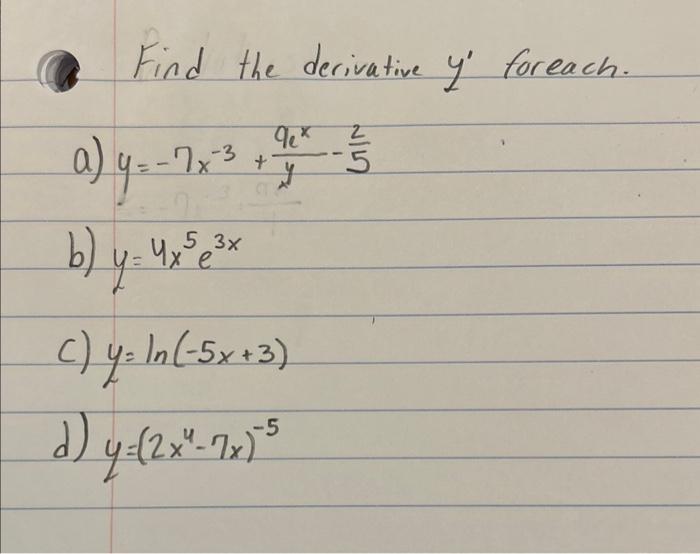 Find the derivative y' foreach.
a) y = -7x^-3 + 9e^x/y - 2/5
b) y = 4x^5 e^3x
c) y = ln(-5x+3)
d) y=(2x^4-7x)^-5